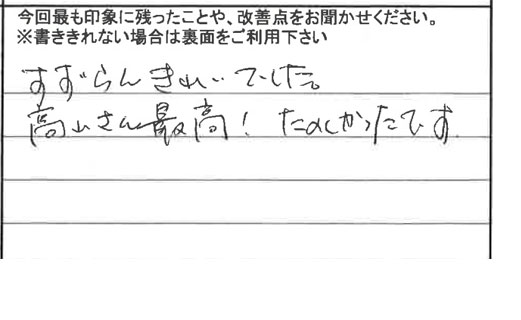 今回最も印象に残ったことや、改善点をお聞かせください。
※書ききれない場合は裏面をご利用下さい
すずらんきれいでした。
高山さん最高！たのしかったです